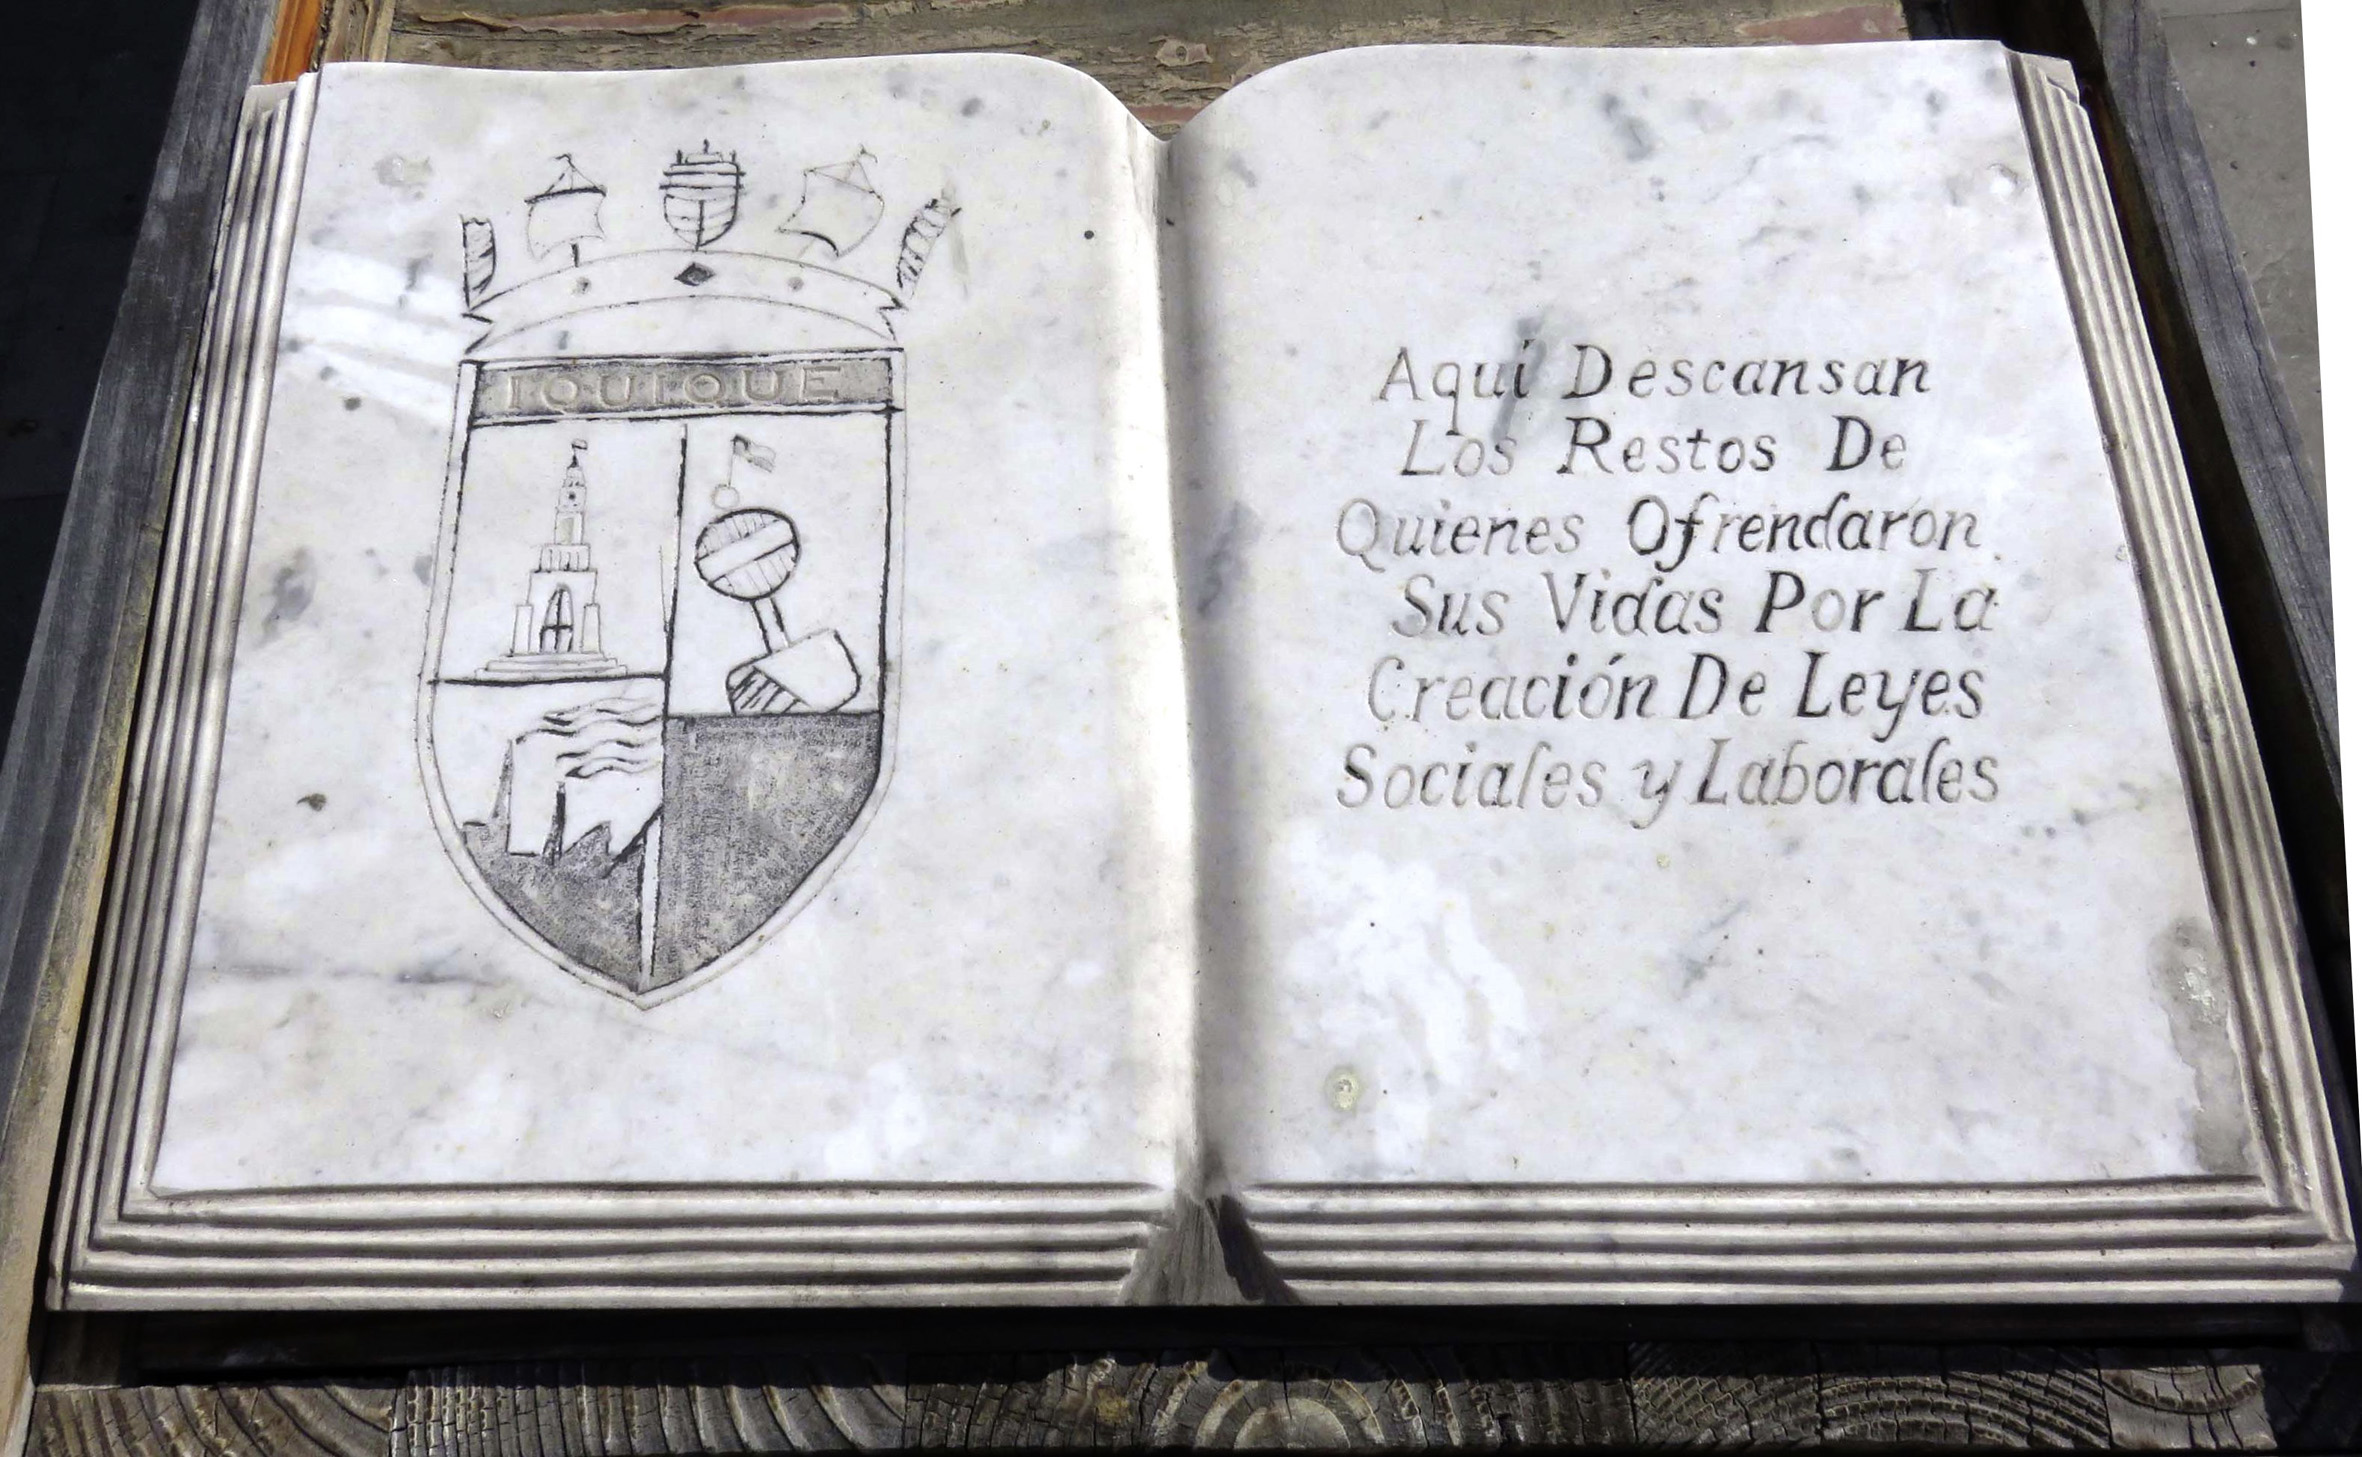 IQUIQUE
Aqui Descansan
Los Restos De
Quienes Ofrendaron
Sus Vidas Por La
Creación De Leyes
Sociales y Laborales